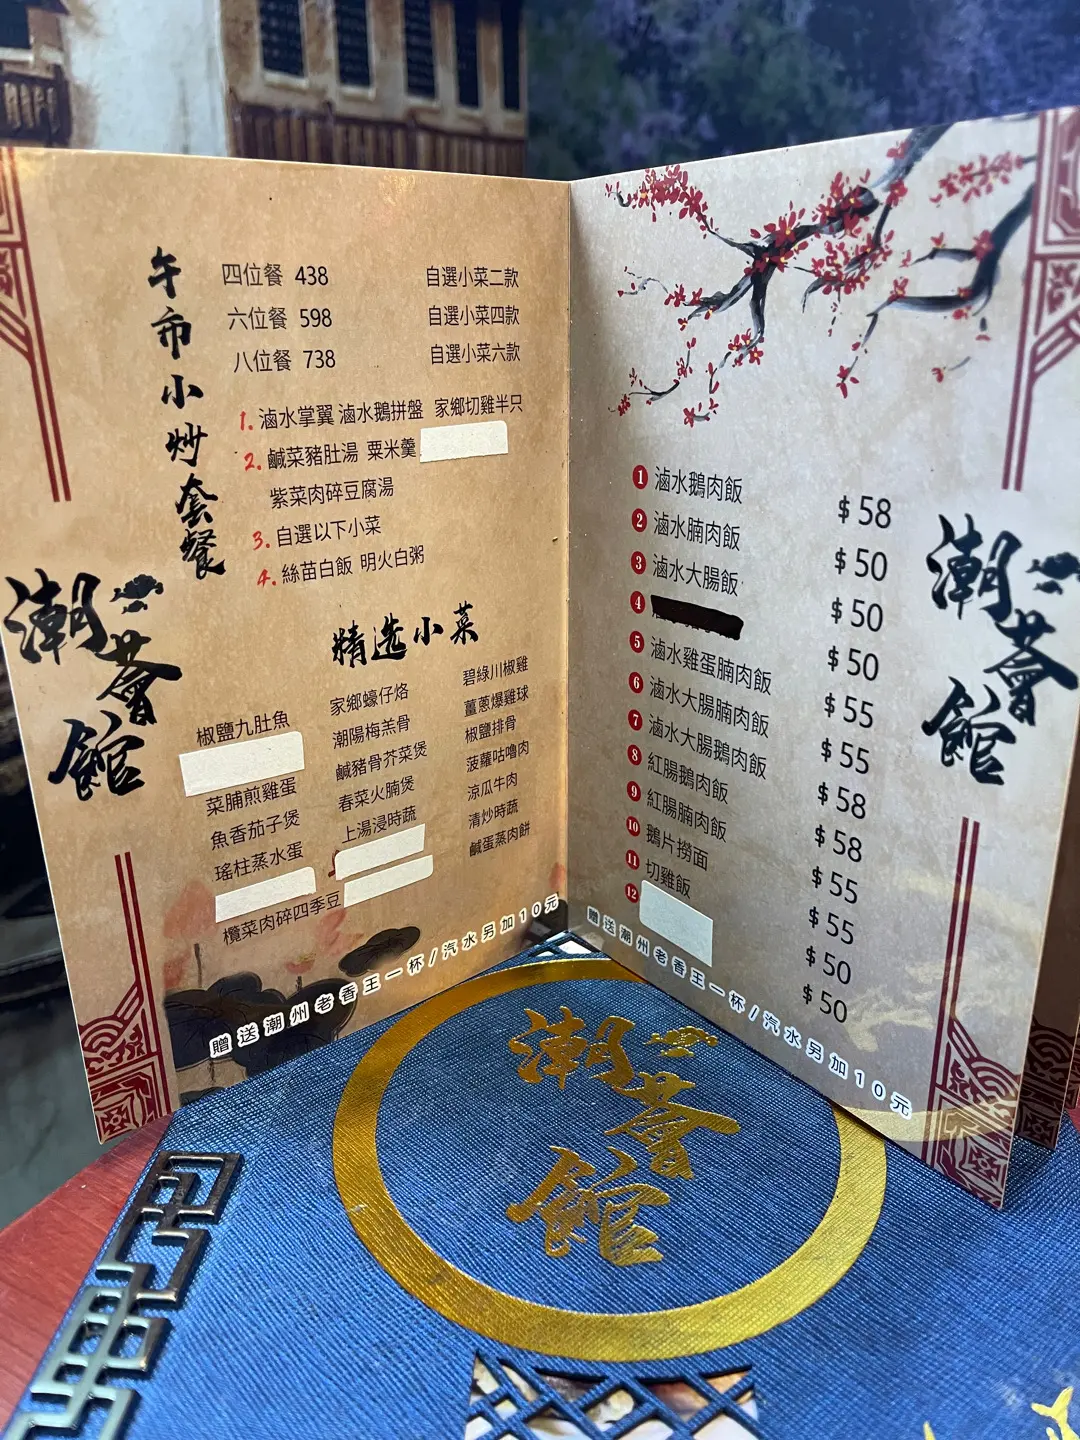 午市小炒套餐
四位餐 438 自選小菜二款
六位餐 598 自選小菜四款
八位餐 738 自選小菜六款
1. 滷水掌翼 滷水鵝拼盤 家鄉切雞半只
2. 鹹菜豬肚湯 粟米羹
紫菜肉碎豆腐湯
3. 自選以下小菜
4. 絲苗白飯 明火白粥
精选小菜
椒鹽九肚魚
菜脯煎雞蛋
魚香茄子煲
瑤柱蒸水蛋
欖菜肉碎四季豆
家鄉蠔仔烙
潮陽梅羔骨
鹹豬骨芥菜煲
春菜火腩煲
上湯浸時蔬
碧綠川椒雞
薑蔥爆雞球
椒鹽排骨
菠蘿咕嚕肉
涼瓜牛肉
清炒時蔬
鹹蛋蒸肉餅
贈送潮州老香王一杯/汽水另加10元
潮薈館
1 滷水鵝肉飯 $58
2 滷水腩肉飯 $50
3 滷水大腸飯 $50
4 $50
5 滷水雞蛋腩肉飯 $55
6 滷水大腸腩肉飯 $55
7 滷水大腸鵝肉飯 $58
8 紅腸鵝肉飯 $58
9 紅腸腩肉飯 $55
10 鵝片撈面 $55
11 切雞飯 $50
12 $50
贈送潮州老香王一杯/汽水另加10元
潮薈館
潮薈館